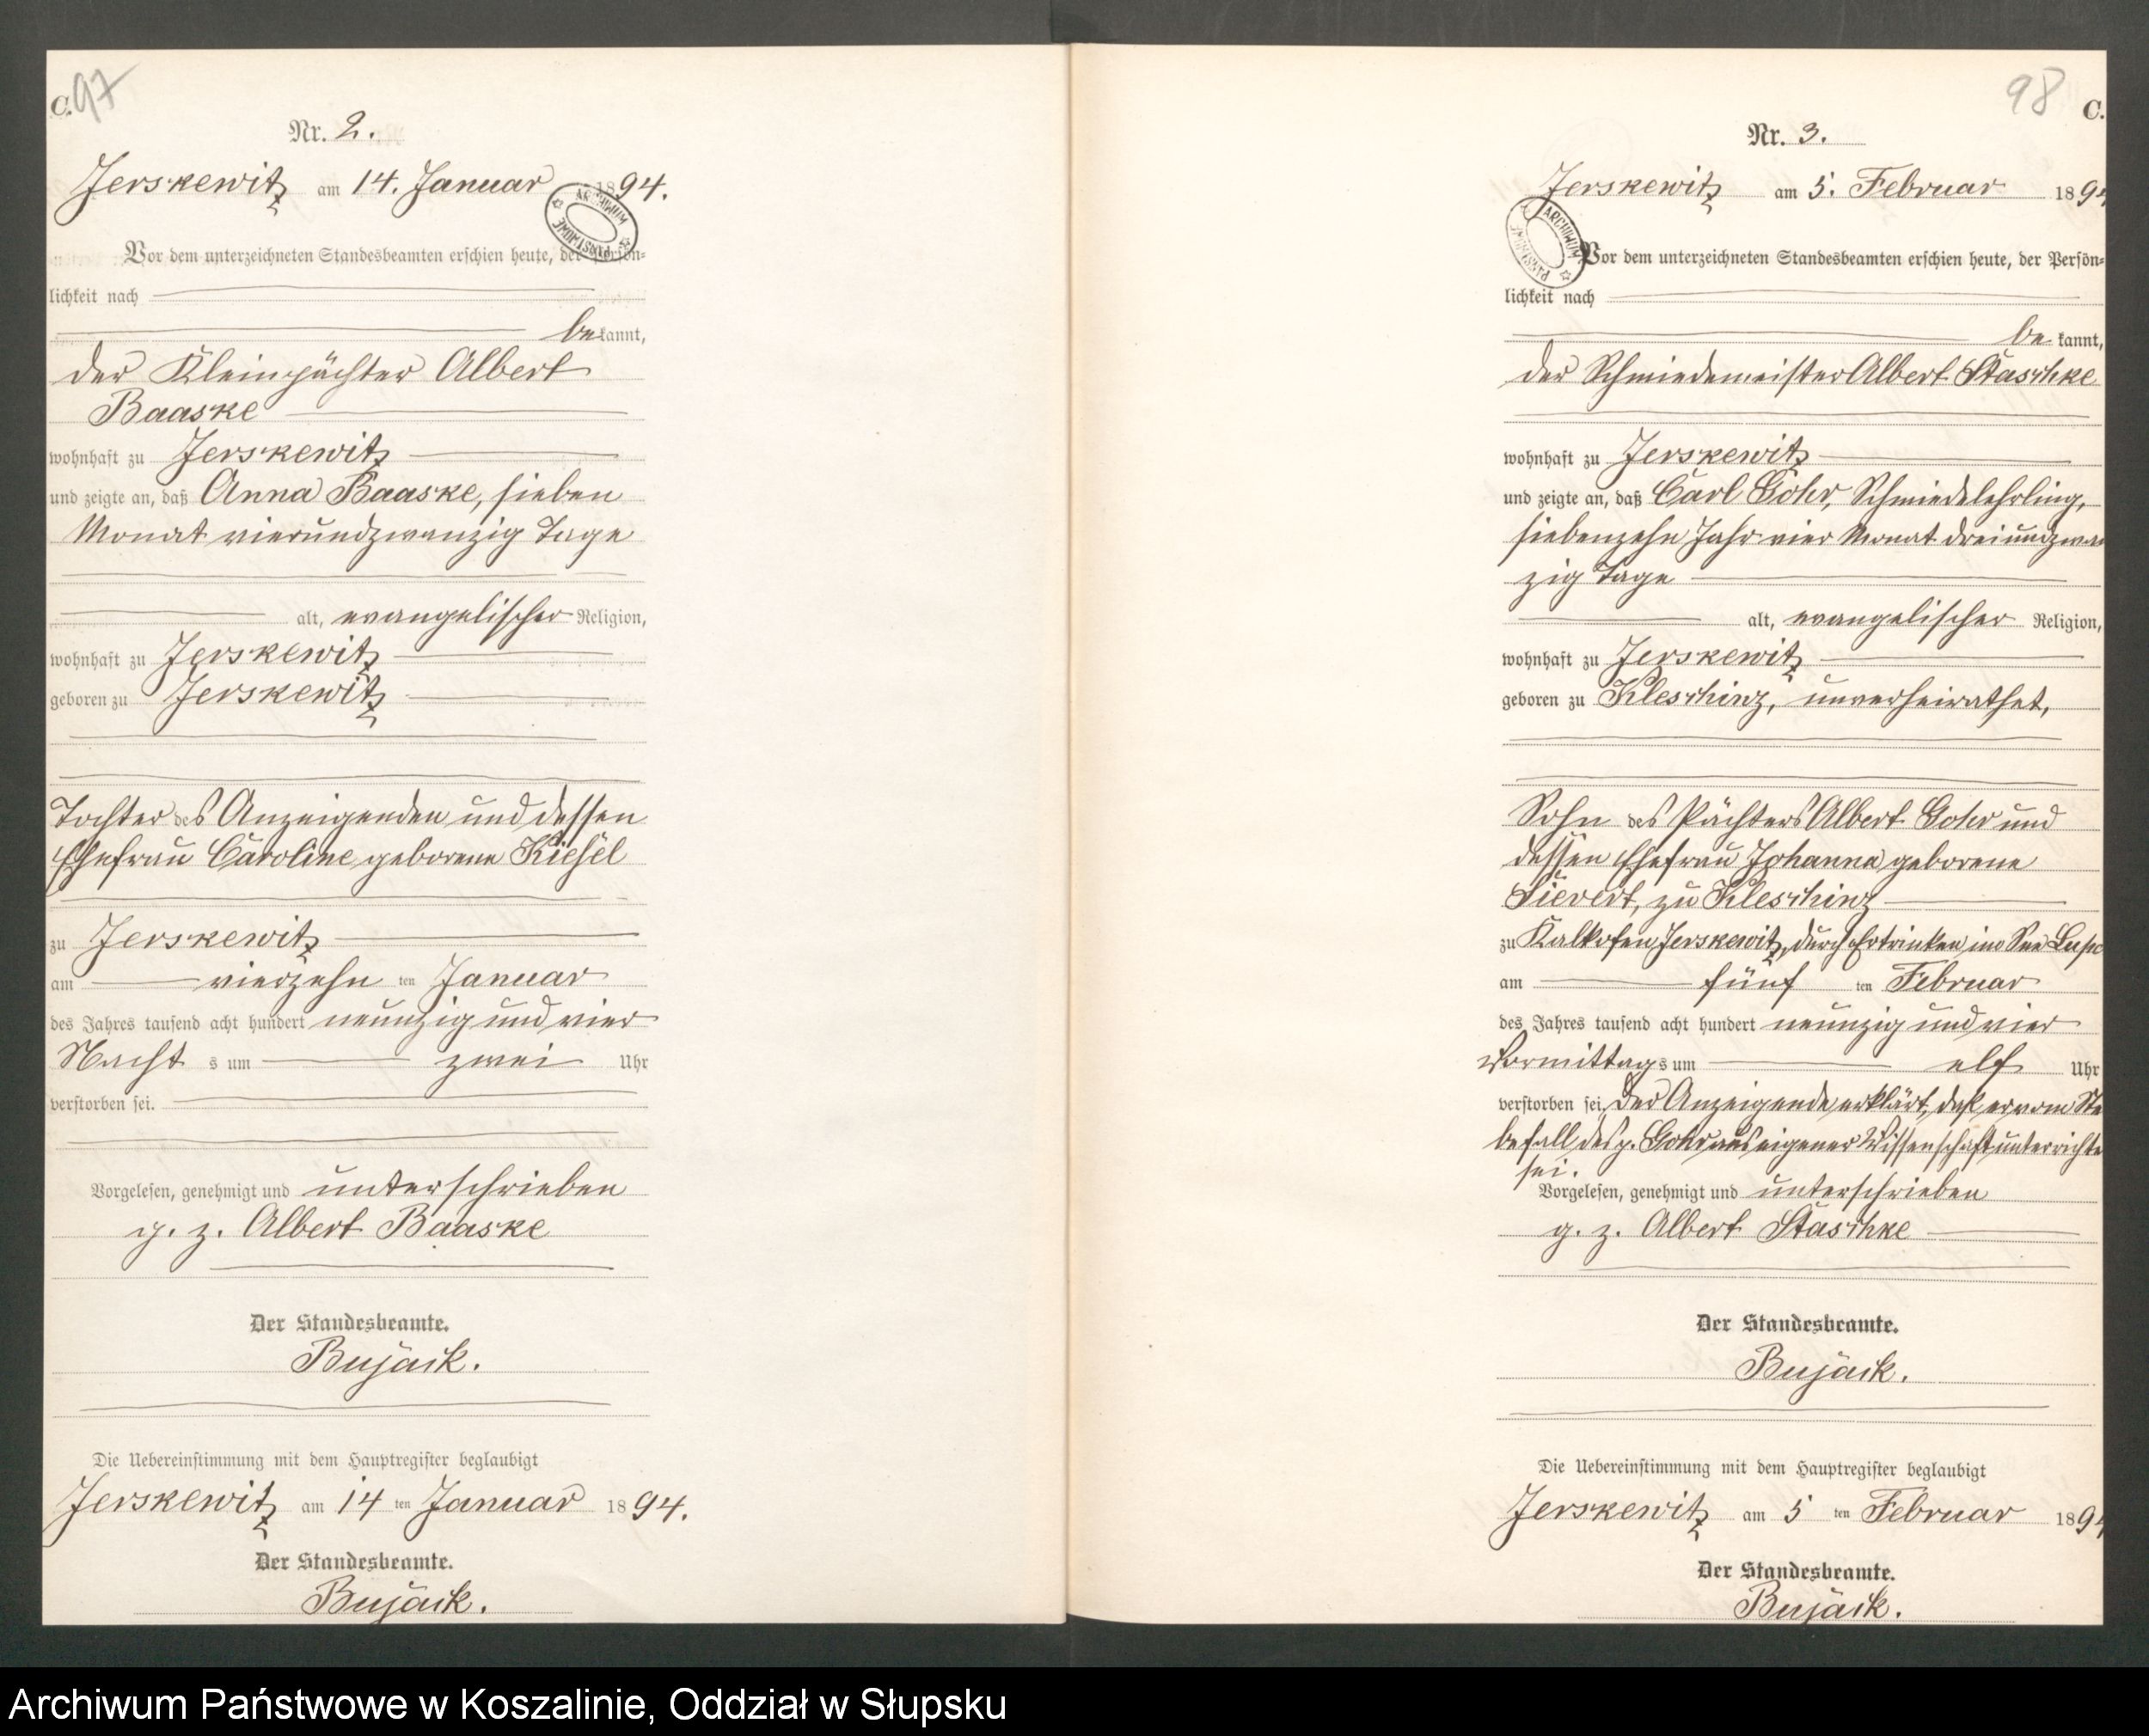 C. 97
Nr. 2.
Jerskewitz am 14. Januar 1894.
ARCHIWUM PAŃSTWOWE
Vor dem unterzeichneten Standesbeamten erschien heute, der Persön-
lichkeit nach
bekannt,
der Kleinpächter Albert
Baaske
wohnhaft zu Jerskewitz
und zeigte an, daß Anna Baaske, sieben
Monat vierundzwanzig Tage
alt, evangelischer Religion,
wohnhaft zu Jerskewitz
geboren zu Jerskewitz
Tochter des Anzeigenden und dessen
Ehefrau Caroline geborene Kiesel
zu Jerskewitz
am vierzehn ten Januar
des Jahres tausend acht hundert neunzig und vier
Nacht s um zwei Uhr
verstorben sei.
Vorgelesen, genehmigt und unterschrieben
g. z. Albert Baaske
Der Standesbeamte.
Bujack.
Die Uebereinstimmung mit dem Hauptregister beglaubigt
Jerskewitz am 14 ten Januar 1894.
Der Standesbeamte.
Bujack.
98 C.
Nr. 3.
Jerskewitz am 5. Februar 189
ARCHIWUM PAŃSTWOWE
Vor dem unterzeichneten Standesbeamten erschien heute, der Persön-
lichkeit nach
be kannt,
der Schmiedemeister Albert Staschke
wohnhaft zu Jerskewitz
und zeigte an, daß Carl Gohr, Schmiedelehrling,
siebenzehn Jahr vier Monat dreiundzwan
zig Tage
alt, evangelischer Religion,
wohnhaft zu Jerskewitz
geboren zu Kleschinz, unverheirathet,
Sohn des Pächters Albert Gohr und
dessen Ehefrau Johanna geborene
Sievert, zu Kleschinz
zu Kalkofen Jerskewitz, durch Ertrinken im See Lupo
am fünf ten Februar
des Jahres tausend acht hundert neunzig und vier
Vormittags um elf Uhr
verstorben sei. Der Anzeigende erklärt, daß er vom Ste
befall des p. Gohr aus eigener Wissenschaft unterrichte
sei.
Vorgelesen, genehmigt und unterschrieben
g. z. Albert Staschke
Der Standesbeamte.
Bujack.
Die Uebereinstimmung mit dem Hauptregister beglaubigt
Jerskewitz am 5 ten Februar 189
Der Standesbeamte.
Bujack.
Archiwum Państwowe w Koszalinie, Oddział w Słupsku